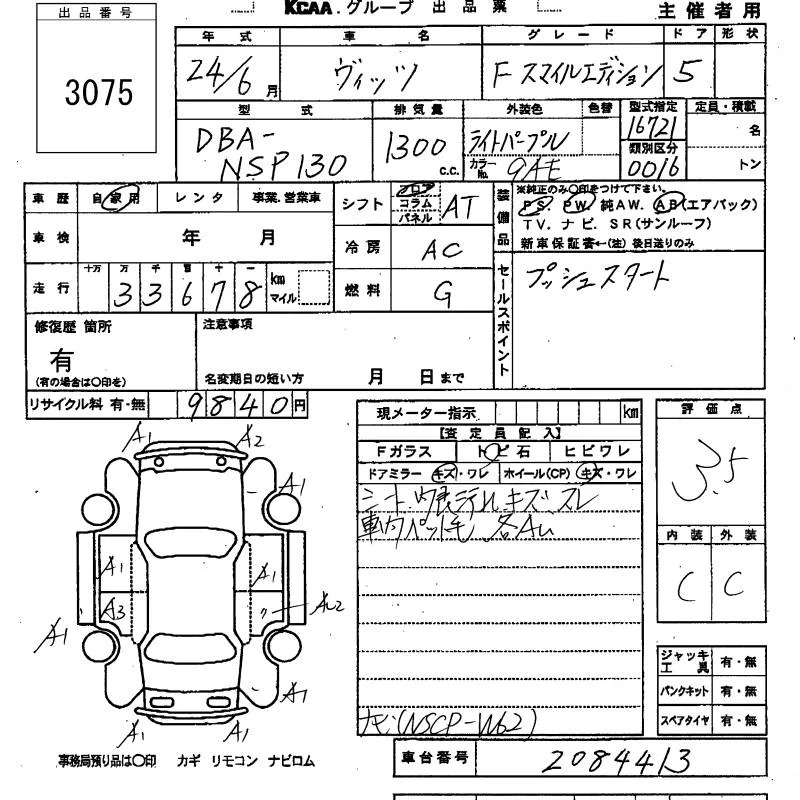 出品番号
3075
KCAA.グループ 出品票
主催者用
年式 車名 グレード ドア 形状
24/6月 ヴィッツ F スマイルエディション 5
型式 排気量 外装色 色替 型式指定 定員・積載
DBA-NSP130 1300 c.c. ライトパープル 16721 名
カラーNo. 9AE 類別区分 0016 トン
車歴 自家用 レンタ 事業.営業車
シフト フロア コラム パネル AT
装備品 ※純正のみ〇印をつけて下さい。
PS. PW. 純AW. AB(エアバック)
TV. ナビ. SR(サンルーフ)
新車保証書←(注)後日送りのみ
車検 年 月
冷房 AC
走行 十万 万 千 百 十 一 km マイル
33678
燃料 G
セールスポイント プッシュスタート
修復歴 箇所
有
(有の場合は〇印を)
注意事項
名変期日の短い方 月 日まで
リサイクル料 有・無 9840円
現メーター指示 km
【査定員記入】
Fガラス トビ石 ヒビワレ
ドアミラー キズ・ワレ ホイール(CP) キズ・ワレ
シート 内張 キズ スレ
車内ペット毛 各AU
ナビ(NSCP-W62)
評価点
3.5
内装 外装
C C
ジャッキ工具 有・無
パンクキット 有・無
スペアタイヤ 有・無
車台番号 2084413
A1 A2
A1
A1 A1
A3 AU2
A1
A1
A1 A1
事務局預り品は〇印 カギ リモコン ナビロム